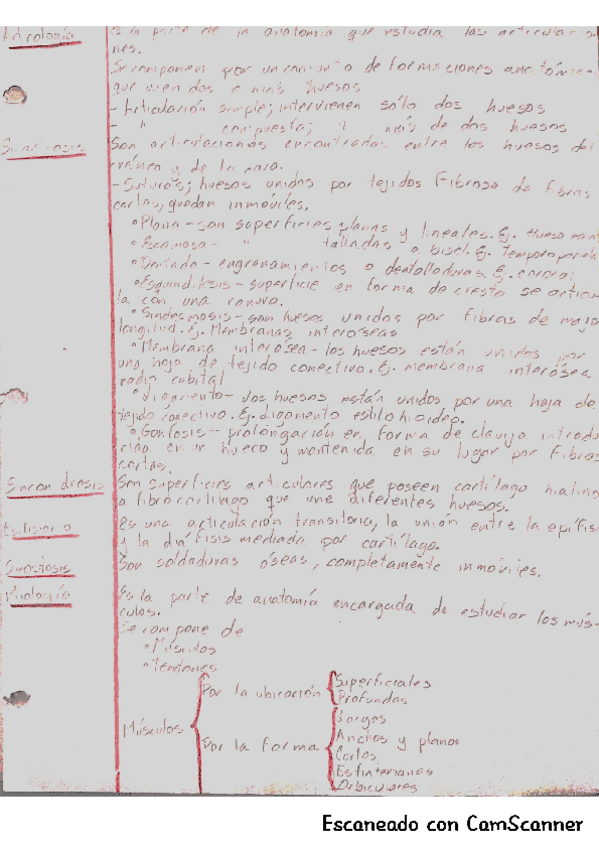 Artrología Es la parte de la anatomía que estudia las articulacio-
nes.
Se componen por un conjunto de formaciones anatómicas
que unen dos o más huesos
- Articulación simple; intervienen sólo dos huesos
- " compuesta; " más de dos huesos
Sinartrosis Son articulaciones encontradas entre los huesos del
cráneo y de la cara.
- Suturas; huesos unidos por tejidos Fibroso de fibras
cortas, quedan inmóviles.
• Plana - son superficies planas y lineales. Ej. Hueso nasal
• Escamosa - " talladas a bisel. Ej. Temporoparietal
• Dentado - engranamientos o dentalladuras. Ej.
• Esquindilesis - superficie en forma de cresta se articu-
la con una ranura.
• Sindesmosis - son huesos unidos por fibras de mayor
longitud. Ej. Membranas interóseas
• Membrana interósea - los huesos están unidos por
una hoja de tejido conectivo. Ej. membrana interósea
radio cubital
• Ligamento - Los huesos están unidos por una hoja de
tejido conectivo. Ej. Ligamento estilohioideo.
• Gonfosis - prolongación en forma de clavija introdu
cida en un hueco y mantenida en su lugar por fibras
cortas.
Sincondrosis Son superficies articulares que poseen cartílago hialino
o fibrocartílago que une diferentes huesos.
Epifisiaria Es una articulación transitoria, la unión entre la epífisis
y la diáfisis mediada por cartílago.
Sinostosis Son soldaduras óseas, completamente inmóviles.
Miología Es la parte de anatomía encargada de estudiar los mús-
culos.
Se compone de
• Músculos
• Tendones
Músculos
Por la ubicación
Superficiales
Profundos
Por la forma
Largos
Anchos y planos
Cortos
Esfinterianos
Orbiculares
Escaneado con CamScanner